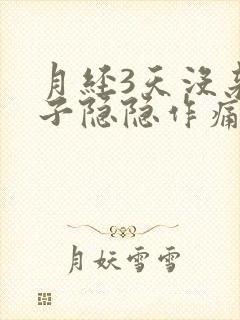 月经3天没
子隐隐作痛
月妖雪雪